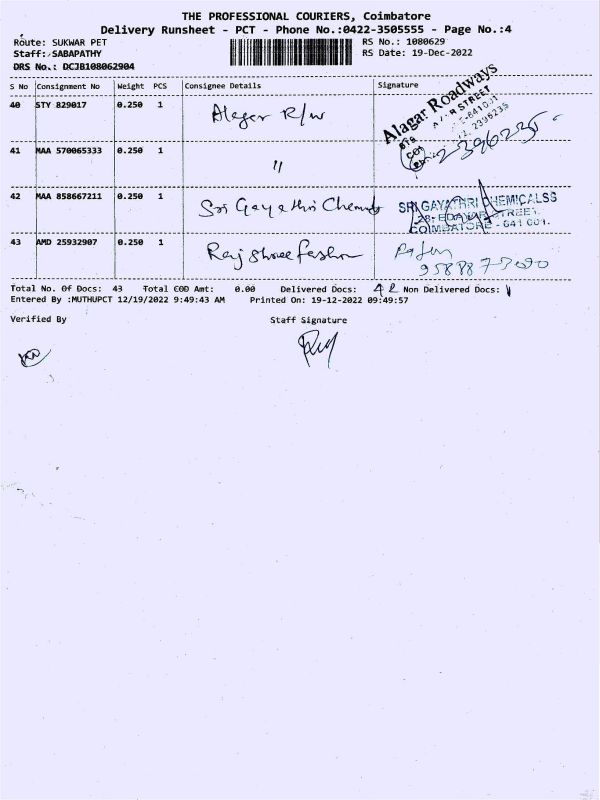 THE PROFESSIONAL COURIERS, Coimbatore
Delivery Runsheet - PCT - Phone No.:0422-3505555 - Page No.:4
Route: SUKWAR PET
RS No.: 1080629
Staff: SABAPATHY
RS Date: 19-Dec-2022
DRS No.: DCJB108062904
S No Consignment No Weight PCS Consignee Details Signature
40 STY 829017 0.250 1 Alagar R/w
Alagar Roadways
STREET
2396235
41 MAA 570065333 0.250 1 "
42 MAA 858667211 0.250 1 Sri Gayathri Chemicals
SRI GAYATHRI CHEMICALSS
28, EDAYAR STREET,
COIMBATORE - 641 001.
43 AMD 25932907 0.250 1 Rajshree fashion
Total No. Of Docs: 43 Total COD Amt: 0.00 Delivered Docs: 42 Non Delivered Docs: 1
Entered By :MUTHUPCT 12/19/2022 9:49:43 AM Printed On: 19-12-2022 09:49:57
Verified By Staff Signature